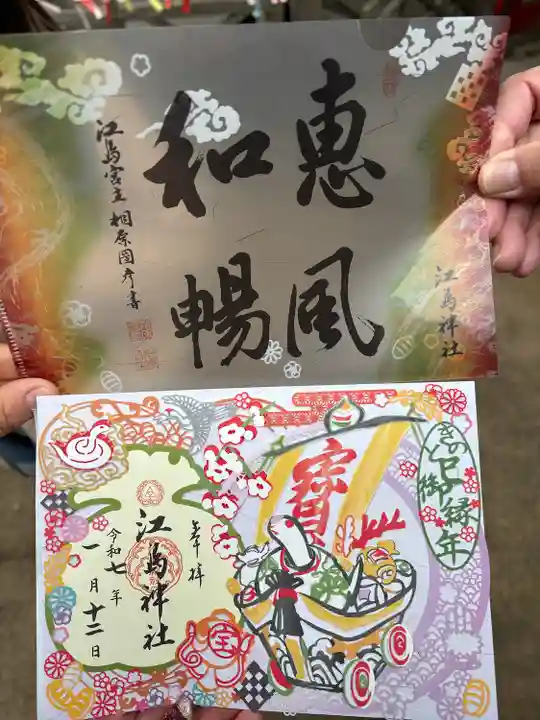 恵風
和暢
江島宮主 相原圀彦書
江島神社
きのと巳
御縁年
寶
奉拝
江島神社
令和七年
一月十二日